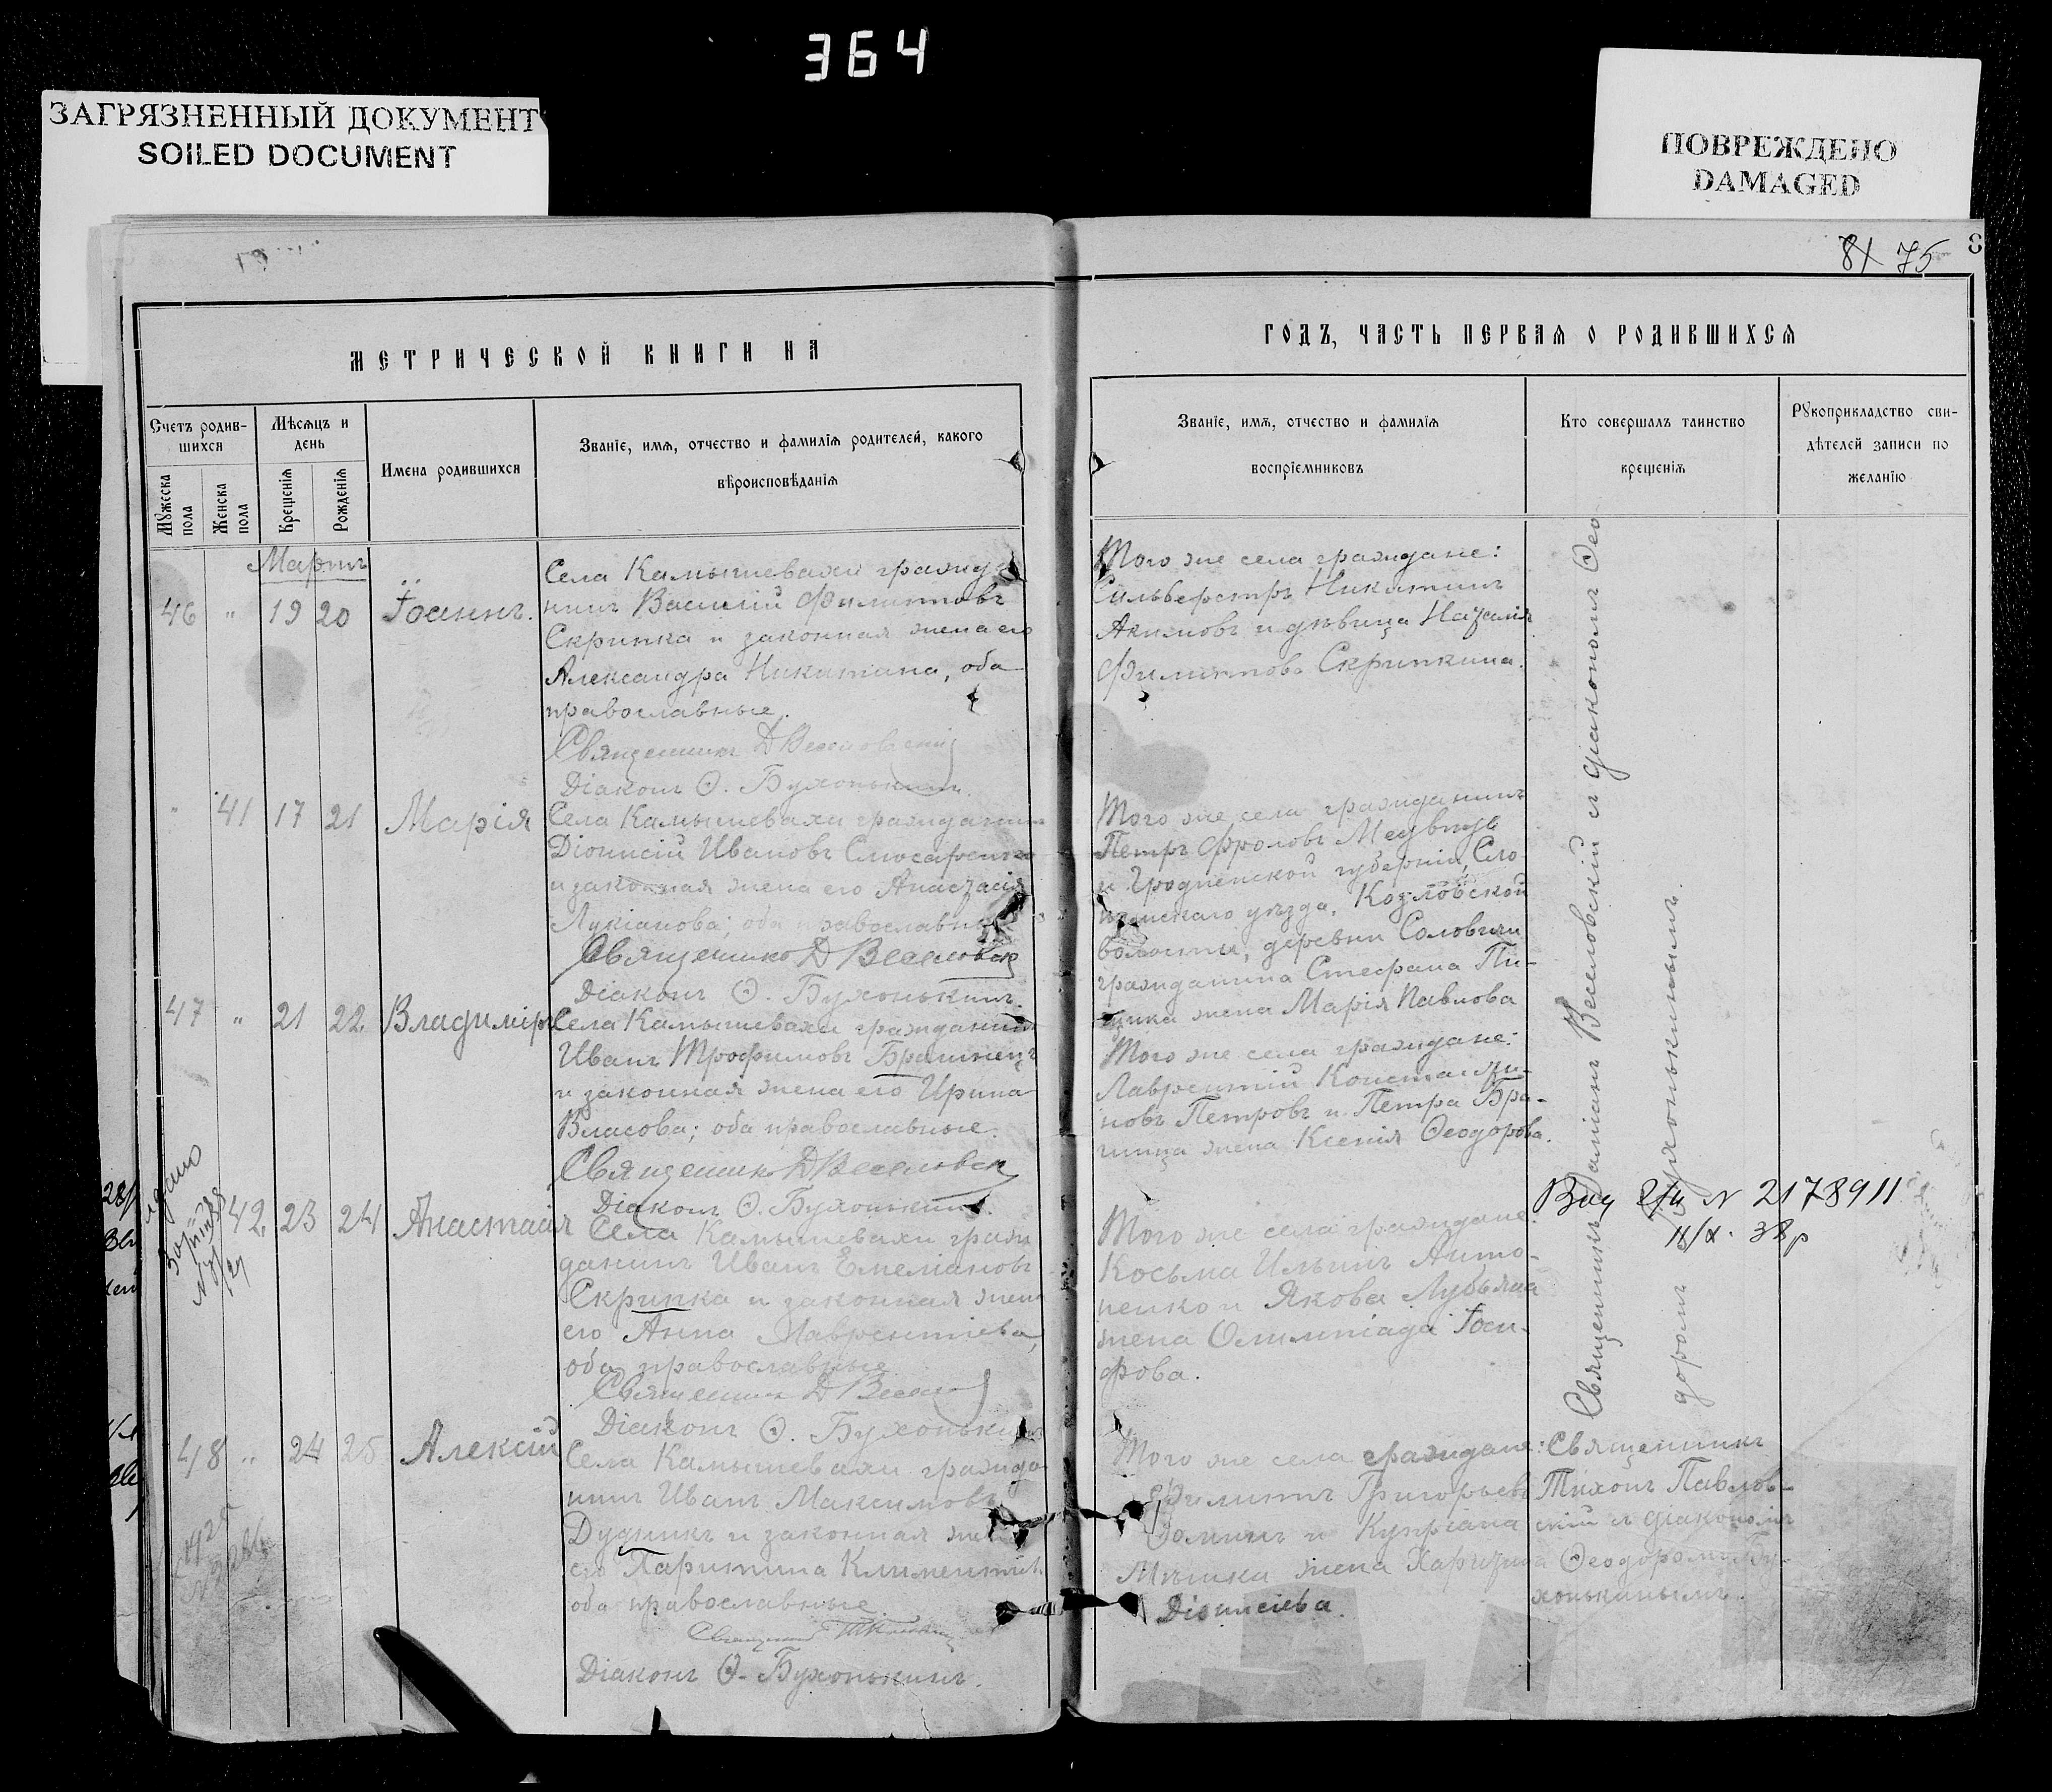 364
ЗАГРЯЗНЕННЫЙ ДОКУМЕНТ
SOILED DOCUMENT
ПОВРЕЖДЕНО
DAMAGED
81 75
8
МЕТРИЧЕСКОЙ КНИГИ НА
Счетъ родив-
шихся
Мѣсяцъ и
день
Мужеска пола
Женска пола
Крещенія
Рожденія
Имена родившихся
Званіе, имя, отчество и фамилія родителей, какого
вѣроисповѣданія
Мартъ
46 " 19 20 Іоаннъ.
Села Камышевахи гражда-
нинъ Василій Филипповъ
Скрипка и законная жена его
Александра Никитина, оба
православные.
Священникъ Д Веселовскій
Діаконъ Ѳ. Бухонькинъ.
" 41 17 21 Марія
Села Камышевахи гражданинъ
Діонисій Ивановъ
и законная жена его Анастасія
Лукіанова; оба православные
Священникъ Д Веселовск
Діаконъ Ѳ. Бухонькинъ.
47 " 21 22 Владиміръ
Села Камышевахи гражданинъ
Иванъ Трофимовъ Бранинецъ
и законная жена его Ирина
Власова; оба православные.
Священникъ Д Веселовск
Діаконъ Ѳ. Бухонькинъ.
42. 23 24 Анастасія
Села Камышевахи граж
данинъ Иванъ Емеліановъ
Скрипка и законная жена
его Анна Лаврентіева,
оба православные
Священникъ Д Весел
Діаконъ Ѳ. Бухонькинъ
48 " 24 25 Алексій
Села Камышевахи гражда-
нинъ Иванъ Максимовъ
Дудникъ и законная жена
его Харитина Климентіе
оба православные
Священникъ
Діаконъ Ѳ. Бухонькинъ.
ГОДЪ, ЧАСТЬ ПЕРВАЯ О РОДИВШИХСЯ
Званіе, имя, отчество и фамилія
воспріемниковъ
Кто совершалъ таинство
крещенія
Рукоприкладство сви-
дѣтелей записи по
желанію
Того же села граждане:
Сильверстръ Никитинъ
Акимовъ и дѣвица Наталія
Филиппова Скрипкина.
Того же села гражданинъ
Петръ Фроловъ Медвѣдь
и Гродненской губерніи, Сло
нимскаго уѣзда, Козловской
волости, деревни Соловичи
гражданина Стефана Пи-
щика жена Марія Павлова
Того же села граждане:
Лаврентій Константи-
новъ Петровъ и Петра Бра-
нница жена Ксенія Ѳеодорова.
Того же села граждане:
Косьма Ильинъ Анто-
ненко и Якова Лубяна
жена Олимпіада Іоси-
фова.
Того же села граждане:
Филиппъ Григорьевъ
Ѳоминъ и Купріана
Мѣшки жена Харитина
Діонисіева.
Священникъ Даміанъ Веселовскій съ діакономъ Ѳео
доромъ Бухонькинымъ.
N 2178911
38р
Священникъ
Тихонъ Павлов-
скій съ діакономъ
Ѳеодоромъ Бу-
хонькинымъ.